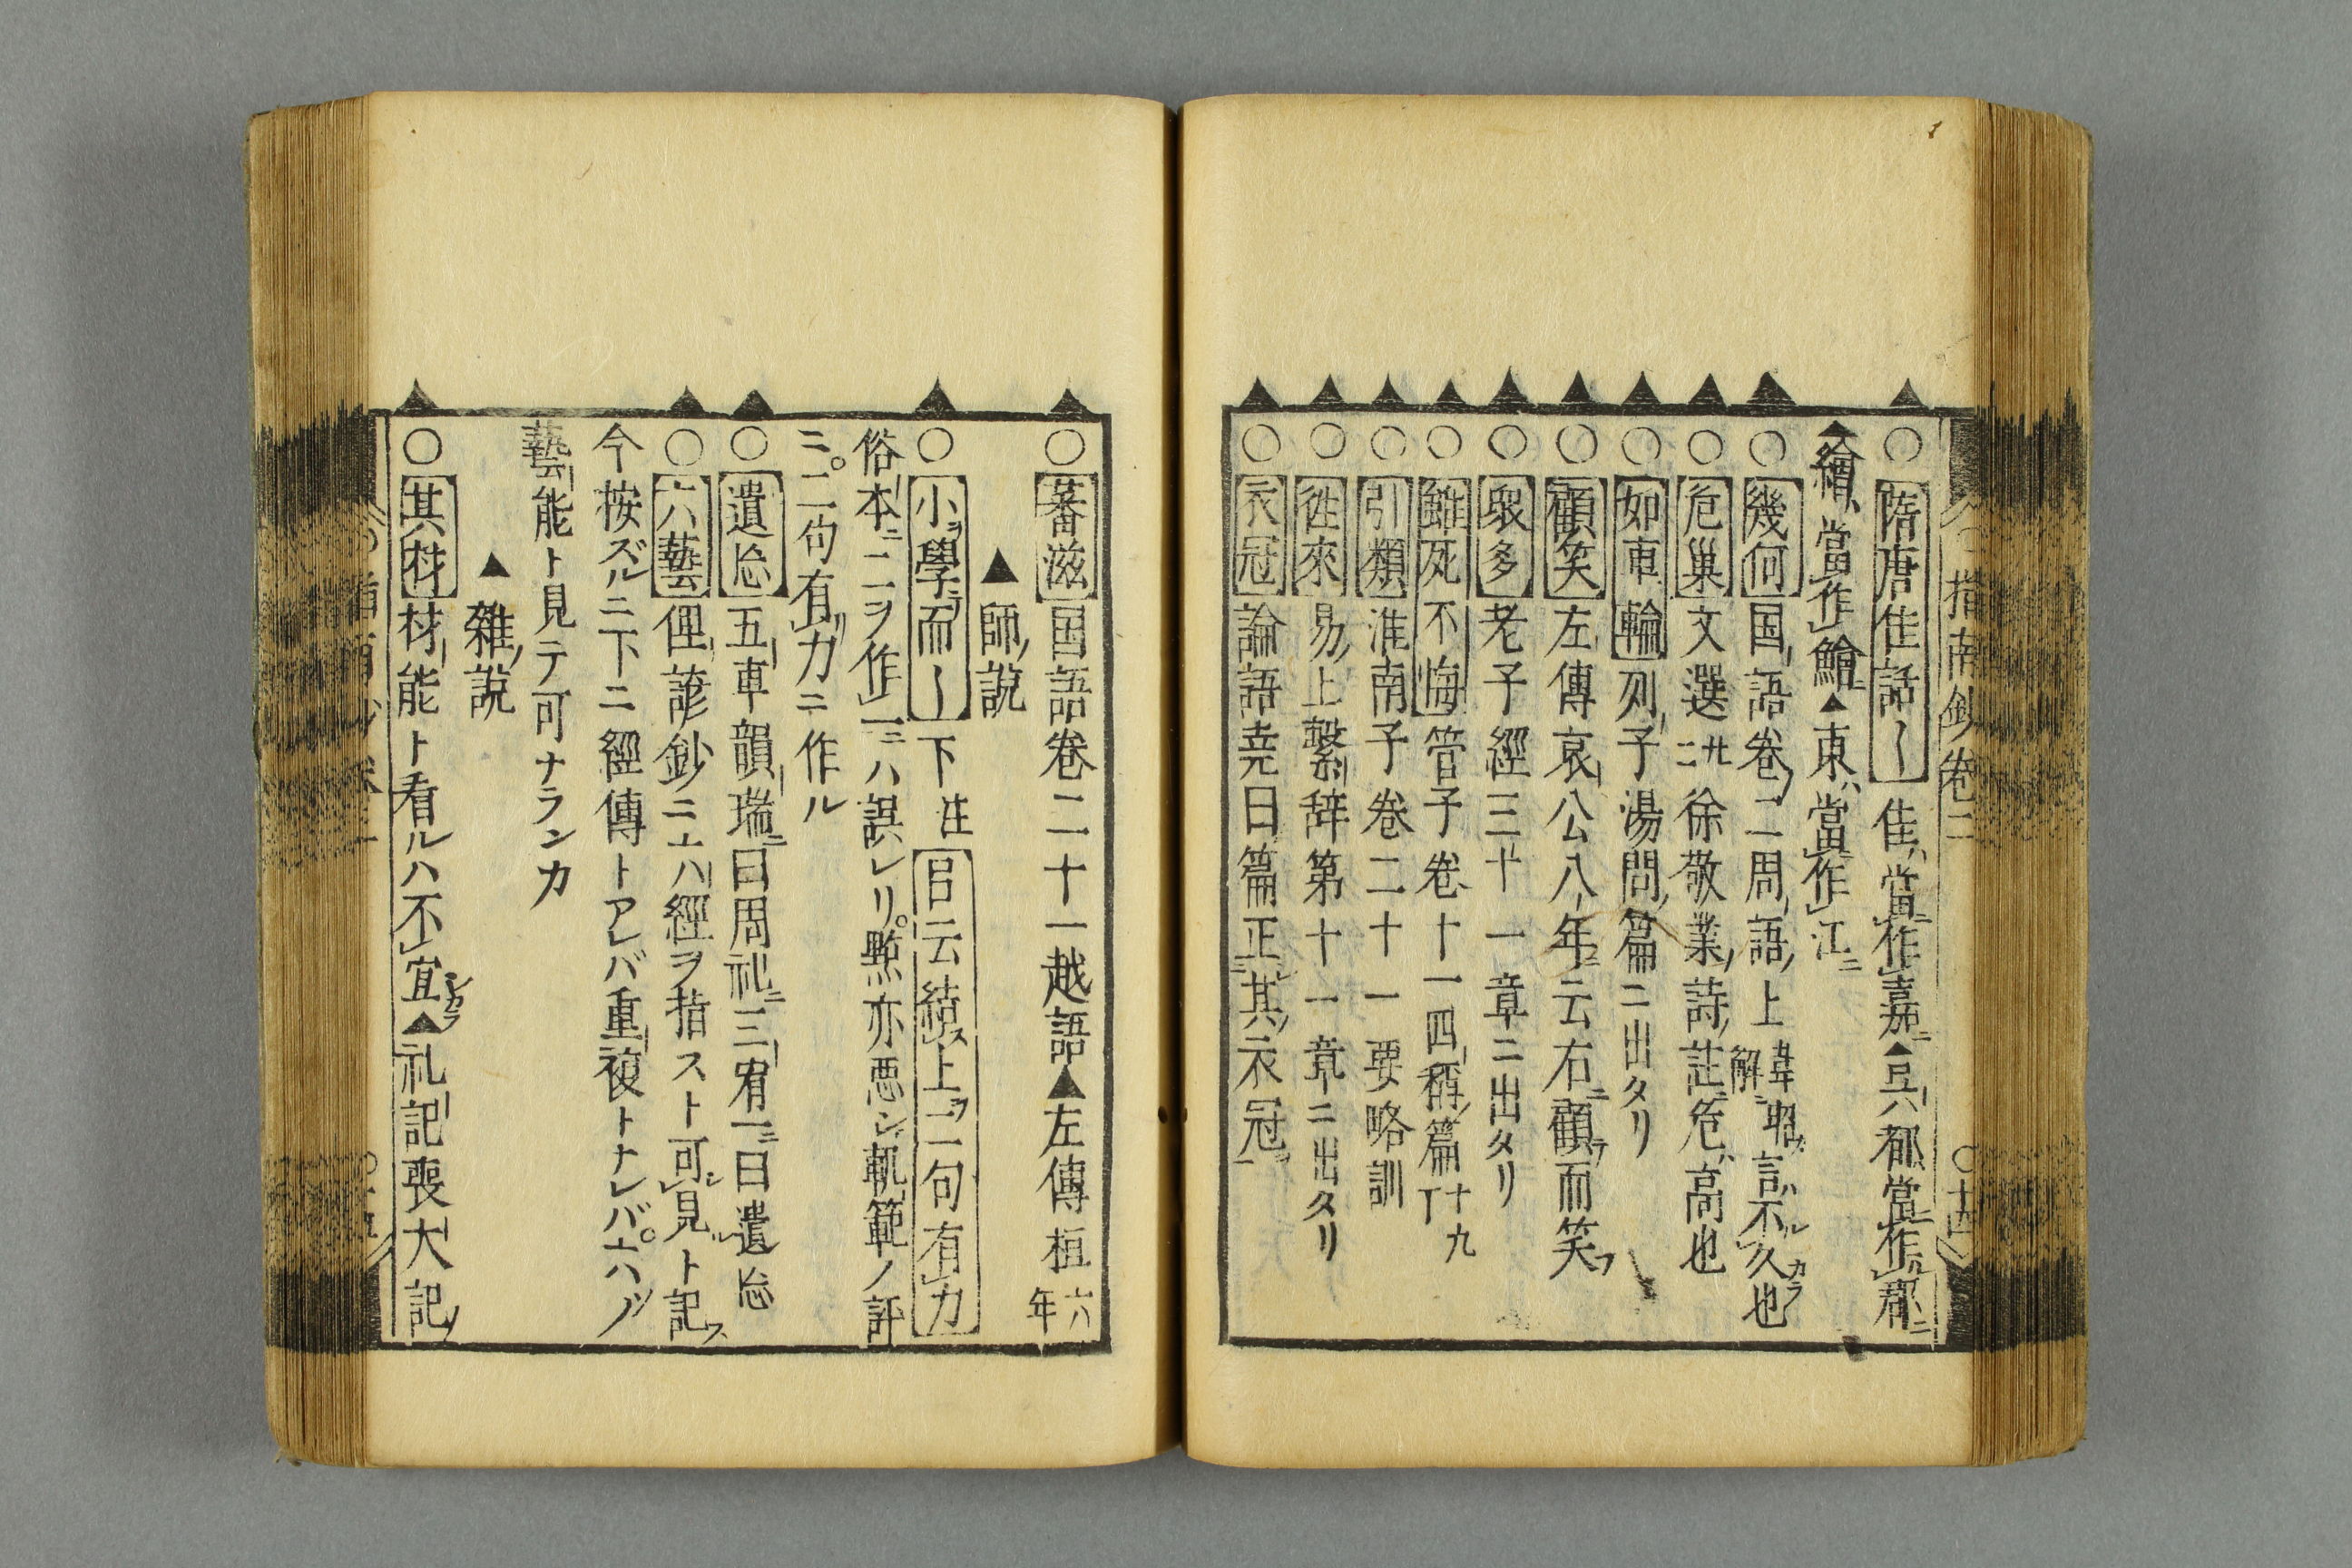 指南鈔卷二
〇十四
〇隋唐佳話〡佳ハ當ニ作ル嘉ニ▲兵ハ都當ニ作ル郡ニ
▲繪ハ當ニ作ル鱠ニ▲東ハ當ニ作ル江ニ
〇幾何国語卷ノ二周語ノ上韋昭解ニ言ハ不ルカラ久也
〇危巢文選廿二徐敬業ノ詩ノ註危ハ高也
〇如車輪列子湯問ノ篇ニ出タリ
〇顧笑左傳哀公八年ニ云右ニ顧フ而笑フ
〇眾多老子經三十一章ニ出タリ
〇雖死不悔管子卷十一四稱ノ篇十九丁
〇引類淮南子卷二十一要略訓
〇徃來易ノ上繫辞第十一章ニ出タリ
〇衣冠論語堯曰篇正ニ其ノ衣冠ヲ
〇蕃滋国語卷二十一越語▲左傳桓六年
▲師ノ說
〇小ヲ學テ而〡下註呂云績ス上ヲ二句有力
俗本ニ二ヲ作一ニハ誤レリ。點亦悪シ軌範ノ評
ニ。二句有リ力ニ作ル
〇遺忘五車韻瑞ニ曰周礼ニ三宥一ニ曰遺忘
〇六藝俚諺鈔ニ六經ヲ指スト可シ見ルト記ス
今按ズルニ下ニ經傳トアレバ重複トナレバ。六ハノ
藝能ト見テ可ナランカ
▲雜ノ說
〇其材材能ト看ルハ不宜シカラ▲礼記喪大記ノ